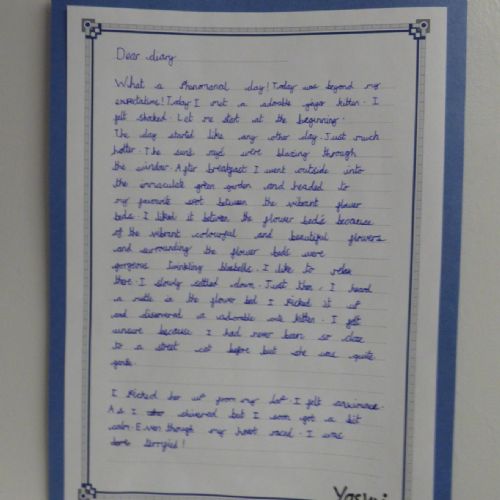 Dear diary
What a Phenomanal day! Today was beyond my
expectations! Today I met a adorable ginger kitten. I
felt shocked. Let me start at the beginning.
The day started like any other day. Just much
hotter. The suns rays were blazing through
the window. After breakfast I went outside into
the immaculate green garden and headed to
my favourite spot between the vibrant flower
beds. I liked it between the flower beds because
of the vibrant colourful and beautiful flowers
and surrounding the flower beds were
gorgeous twinkling bluebells. I like to relax
there. I slowly settled down. Just then, I heard
a rustle in the flower bed I Picked it up
and discovered a adorable cute kitten. I felt
unsure because I had never been so close
to a street cat before but she was quite
gentle.
I Picked her up from my lap. I felt
As I shivered but I soon got a bit
calm. Even though my heart raced. I was
terrified!